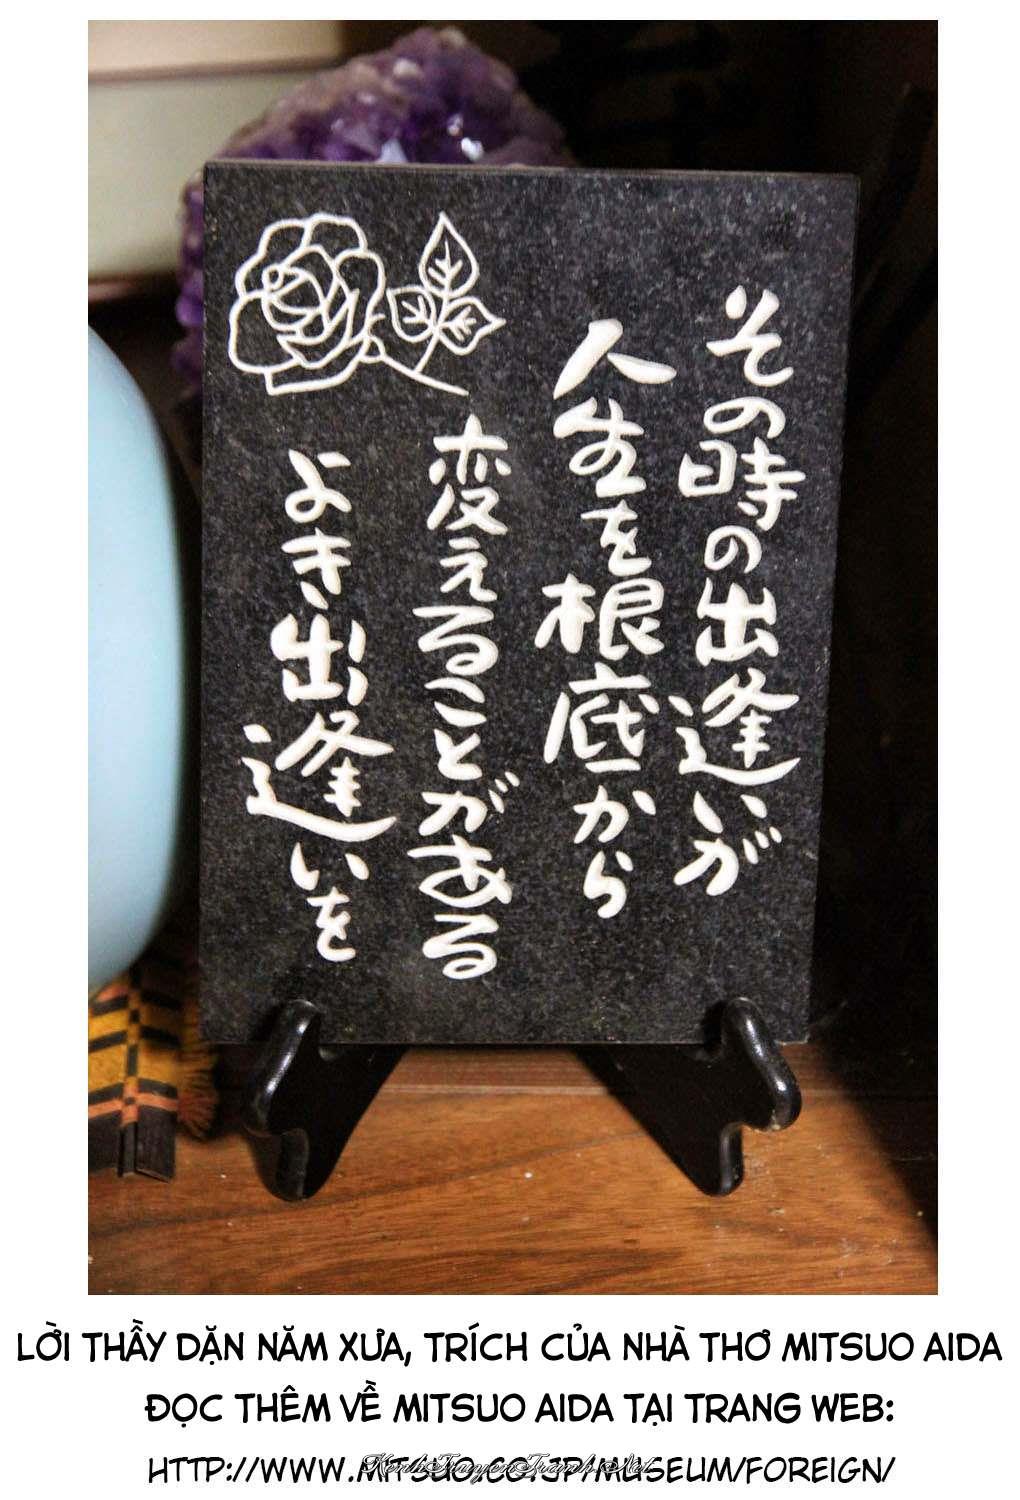 その時の出逢いが
人生を根底から
変えることがある
よき出逢いを
LỜI THẦY DẶN NĂM XƯA, TRÍCH CỦA NHÀ THƠ MITSUO AIDA
ĐỌC THÊM VỀ MITSUO AIDA TẠI TRANG WEB:
HTTP://WWW.MITSUO.CO.JP/MUSEUM/FOREIGN/
KenhTruyenTranh.Net